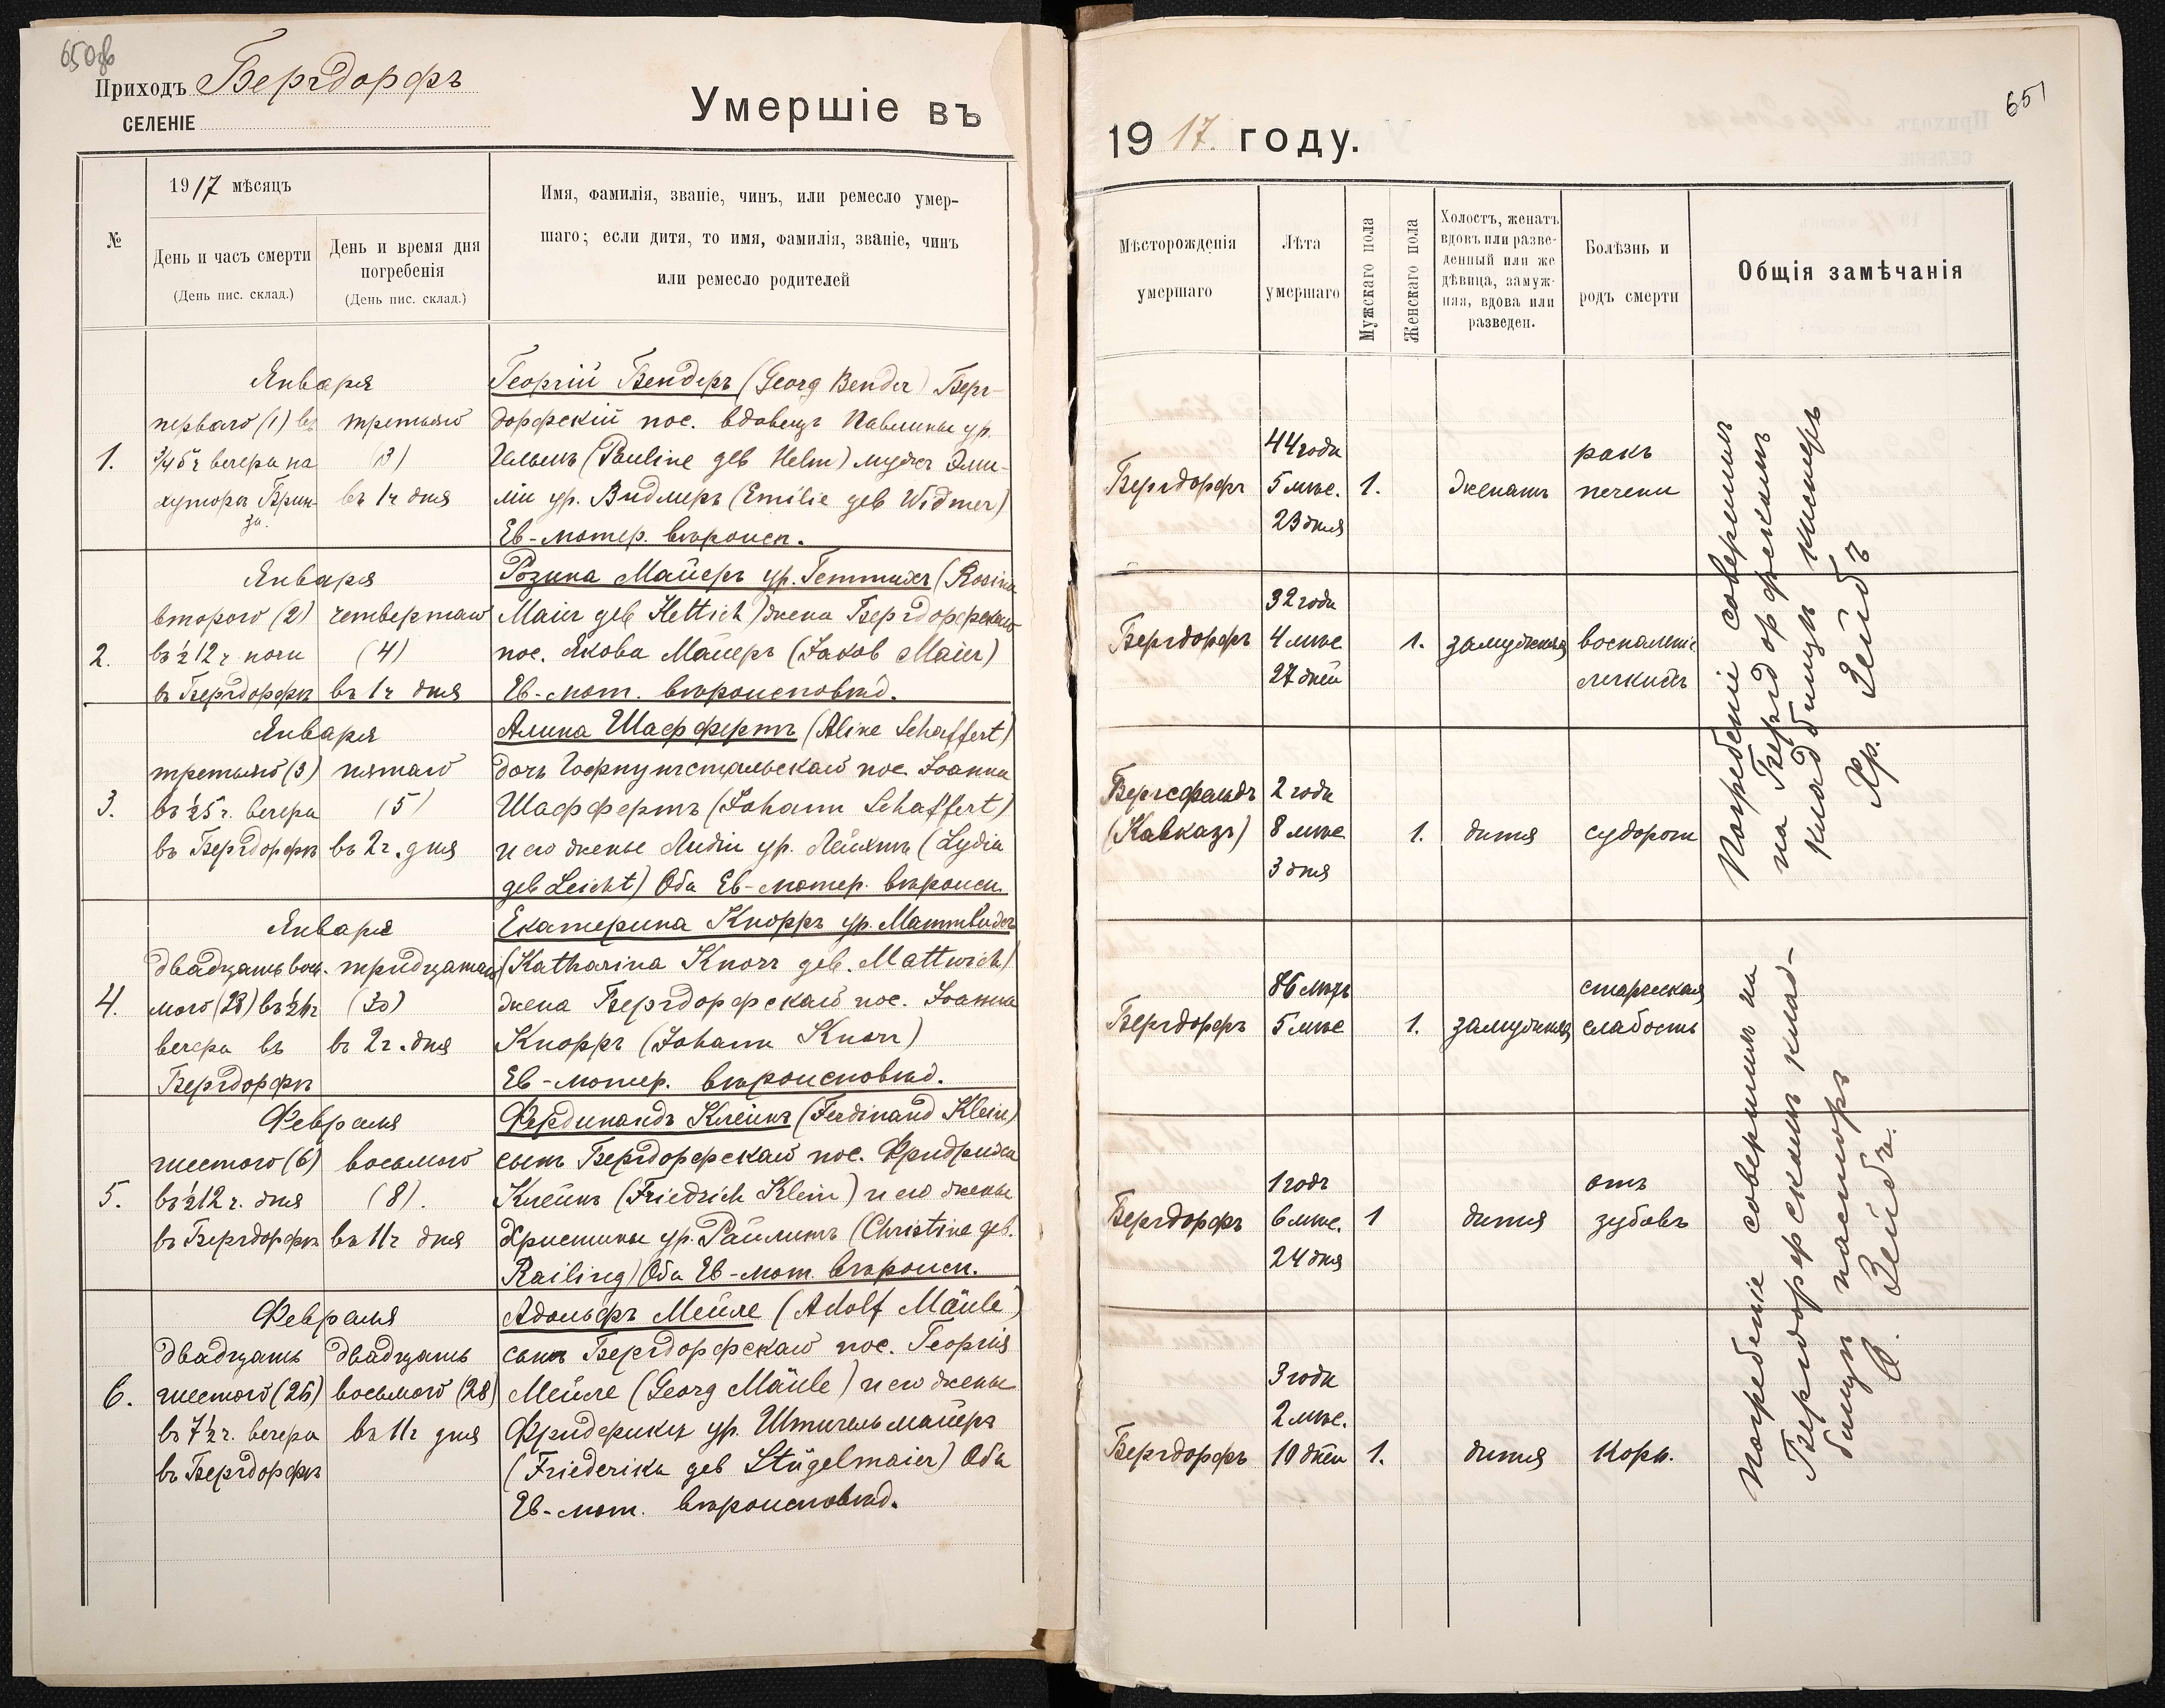 650об
Приходъ Бергдорфъ
СЕЛЕНІЕ
Умершіе въ
№
1917 мѣсяцъ
День и часъ смерти
(День пис. склад.)
День и время дня
погребенія
(День пис. склад.)
Имя, фамилія, званіе, чинъ, или ремесло умер-
шаго; если дитя, то имя, фамилія, званіе, чинъ
или ремесло родителей
1.
Января
перваго (1) въ
3/4 5 ч вечера на
хуторѣ Брин-
за.
третьяго
(3)
въ 1ч дня
Георгій Бендеръ (Georg Bender) Берг-
дорфскій пос. вдовецъ Павлины ур.
Гельмъ (Pauline geb Helm) мужъ Эми-
ліи ур. Видмеръ (Emilie geb Widmer)
Ев-лютер. вѣроисп.
2.
Января
второго (2)
въ ½12 ч ночи
въ Бергдорфѣ
четвертаго
(4)
въ 1ч дня
Розина Майеръ ур. Геттихъ (Rosina
Maier geb Hettich) жена Бергдорфскаго
пос. Якова Майеръ (Jakob Maier)
Ев-лют. вѣроисповѣд.
3.
Января
третьяго (3)
въ ½5 ч. вечера
въ Бергдорфѣ
пятаго
(5)
въ 2ч. дня
Алина Шаффертъ (Aline Schaffert)
дочь Гофнунгстальскаго пос. Іоанна
Шаффертъ (Johann Schaffert)
и его жены Лидіи ур. Лейхтъ (Lydia
geb Leicht) Оба Ев-лютер. вѣроисп.
4.
Января
двадцать вось-
мого (28) въ
вечера въ
Бергдорфѣ
тридцатаго
(30)
въ 2ч. дня
Екатерина Кнорръ ур. Маттвихъ
(Katharina Knorr geb. Mattwich)
жена Бергдорфскаго пос. Іоанна
Кнорръ (Johann Knorr)
Ев-лютер. вѣроисповѣд.
5.
Февраля
шестого (6)
въ ½12 ч. дня
въ Бергдорфѣ
восьмого
(8).
въ 11ч дня
Фердинандъ Клейнъ (Ferdinand Klein)
сынъ Бергдорфскаго пос. Фридриха
Клейнъ (Friedrich Klein) и его жены
Христины ур. Райлингъ (Christine geb.
Railing) Оба Ев-лют. вѣроисп.
6.
Февраля
двадцать
шестого (26)
въ 7½ ч. вечера
въ Бергдорфѣ
двадцать
восьмого (28)
въ 11ч дня
Адольфъ Мейле (Adolf Mäule)
сынъ Бергдорфскаго пос. Георгія
Мейле (Georg Mäule) и его жены
Фридерики ур. Штигельмайеръ
(Friederika geb Stügelmaier) Оба
Ев-лют. вѣроисповѣд.
651
1917. году.
Мѣсторожденія
умершаго
Лѣта
умершаго
Мужскаго пола
Женскаго пола
Холостъ, женатъ
вдовъ или разве-
денный или же
дѣвица, замуж-
няя, вдова или
разведен.
Болѣзнь и
родъ смерти
Общія замѣчанія
Бергдорфъ
44 года
5 мѣс.
23 дня
1.
женатъ
ракъ
печени
Бергдорфъ
32 года
4 мѣс
27 дней
1.
замужняя
воспаленіе
легкихъ
Бергсфельдъ
(Кавказъ)
2 года
8 мѣс
3 дня
1.
дитя
судороги
Погребеніе совершилъ
на Бергдорфскомъ
кладбищѣ кистеръ
Хр. Зейбъ
Бергдорфъ
86 лѣтъ
5 мѣс
1.
замужняя
старческая
слабость
Бергдорфъ
1 годъ
6 мѣс.
24 дня
1
дитя
отъ
зубовъ
Бергдорфъ
3 года
2 мѣс.
10 дней
1.
дитя
Корь.
Погребеніе совершилъ на
Бергдорфскомъ клад-
бищѣ пасторъ